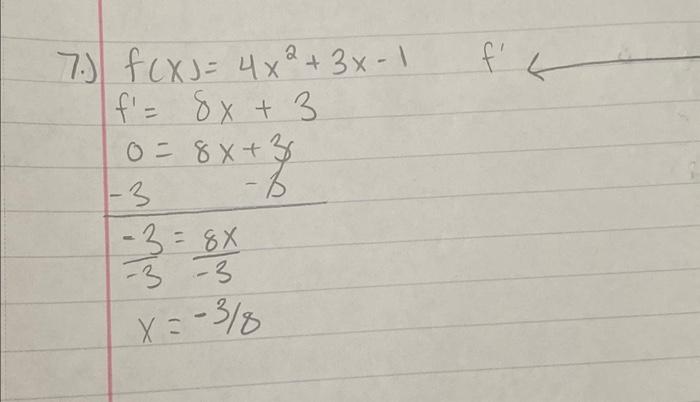 7.) f(x) = 4x² + 3x - 1 f' ←
f' = 8x + 3
0 = 8x + 3
-3 -3
-3 = 8x
-3 -3
x = -3/8